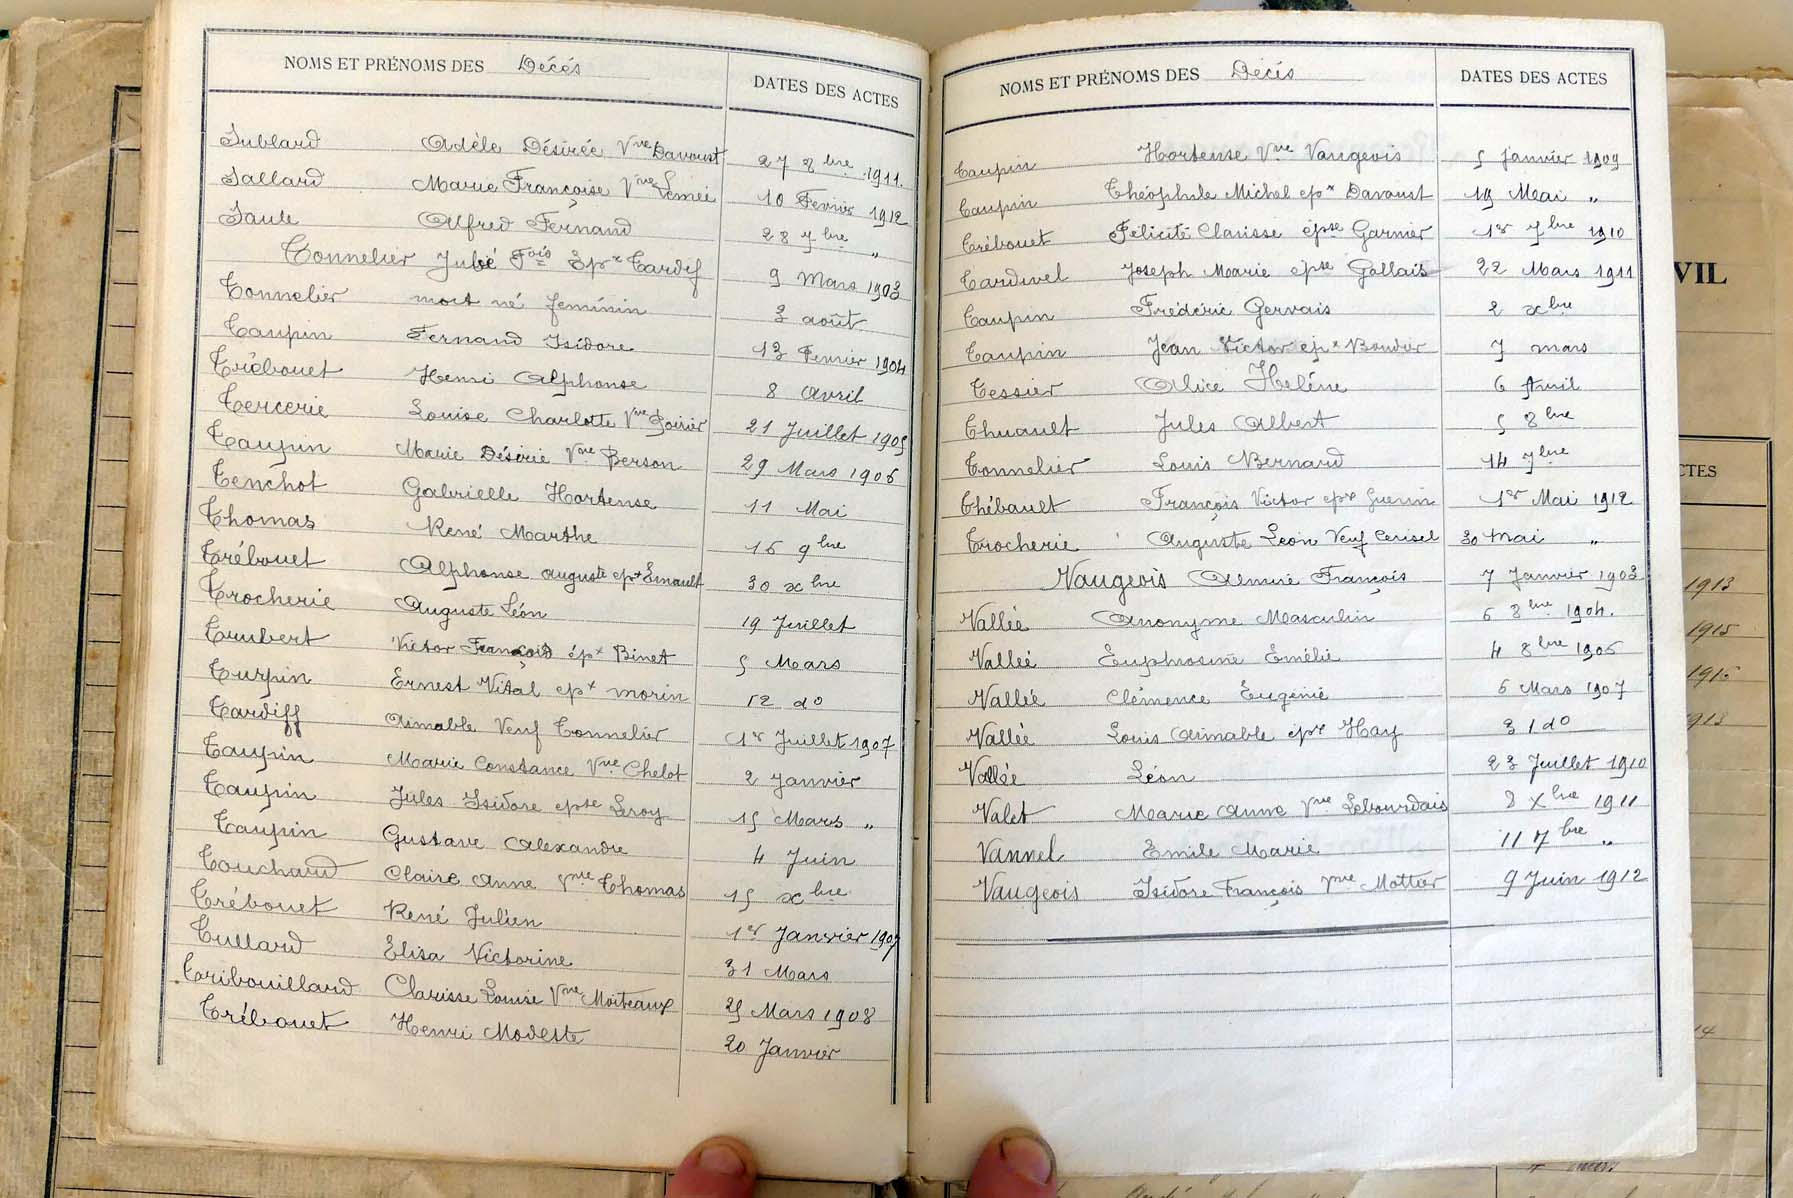 NOMS ET PRÉNOMS DES Décès DATES DES ACTES
Sublard Adèle Désirée Vve Davoust 27 8bre 1911.
Sallard Marie Françoise Vve Lemée 10 Fevrier 1912
Saule Alfred Fernand 28 7bre "
Tonnelier Julie Fois Epx Tardif 9 Mars 1903
Tonnelier mort né feminin 3 août
Taupin Fernand Isidore 13 Fevrier 1904
Trébouet Henri Alphonse 8 avril
Tercerie Louise Charlotte Vve Poirier 21 Juillet 1905
Taupin Marie Désirée Vve Berson 29 Mars 1906
Tenchot Gabrielle Hortense 11 Mai
Thomas René Marthe 16 9bre
Trébouet Alphonse auguste epx Esnault 30 xbre
Trocherie Auguste Léon 19 Juillet
Trubert Victor François épx Binet 5 Mars
Turpin Ernest Vital epx morin 12 do
Tardiff Aimable Veuf Tonnelier 1er Juillet 1907
Taupin Marie Constance Vve Chelot 2 Janvier
Taupin Jules Isidore epse Leroy 15 Mars "
Taupin Gustave Alexandre 4 Juin
Touchard Claire Anne Vve Thomas 15 xbre
Trébouet René Julien 1er Janvier 1907
Tullard Elisa Victorine 31 Mars
Tribouillard Clarisse Louise Vve Moiteaux 25 Mars 1908
Trébouet Henri Modeste 20 Janvier
NOMS ET PRÉNOMS DES Décès DATES DES ACTES
Taupin Hortense Vve Vaugeois 5 janvier 1909
Taupin Théophile Michel epx Davoust 19 Mai "
Trébouet Félicité Clarisse épse Garnier 1er 7bre 1910
Tardivel Joseph Marie epse Gallais 22 Mars 1911
Taupin Frédéric Gervais 2 xbre
Taupin Jean Victor epx Boudor 7 mars
Tessier Alice Helène 6 Avril
Thuault Jules Albert 5 8bre
Tonnelier Louis Bernard 14 7bre
Thébault François Victor epx Guerin 1er Mai 1912
Trocherie Auguste Leon Veuf Cerisel 30 Mai "
Vaugeois François 7 Janvier 1903
Vallée Anonyme Masculin 6 8bre 1904.
Vallée Euphosine Emélie 4 8bre 1906
Vallée Clémence Eugénie 6 Mars 1907
Vallée Louis Aimable epx Hay 31 do
Vallée Léon 23 Juillet 1910
Valet Marie Anne Vve Lebourdais 8 Xbre 1911
Vannel Emile Marie 11 7bre "
Vaugeois Isidore François Vve Mottier 9 Juin 1912
VIL
CTES
1913
1915
1915
1913